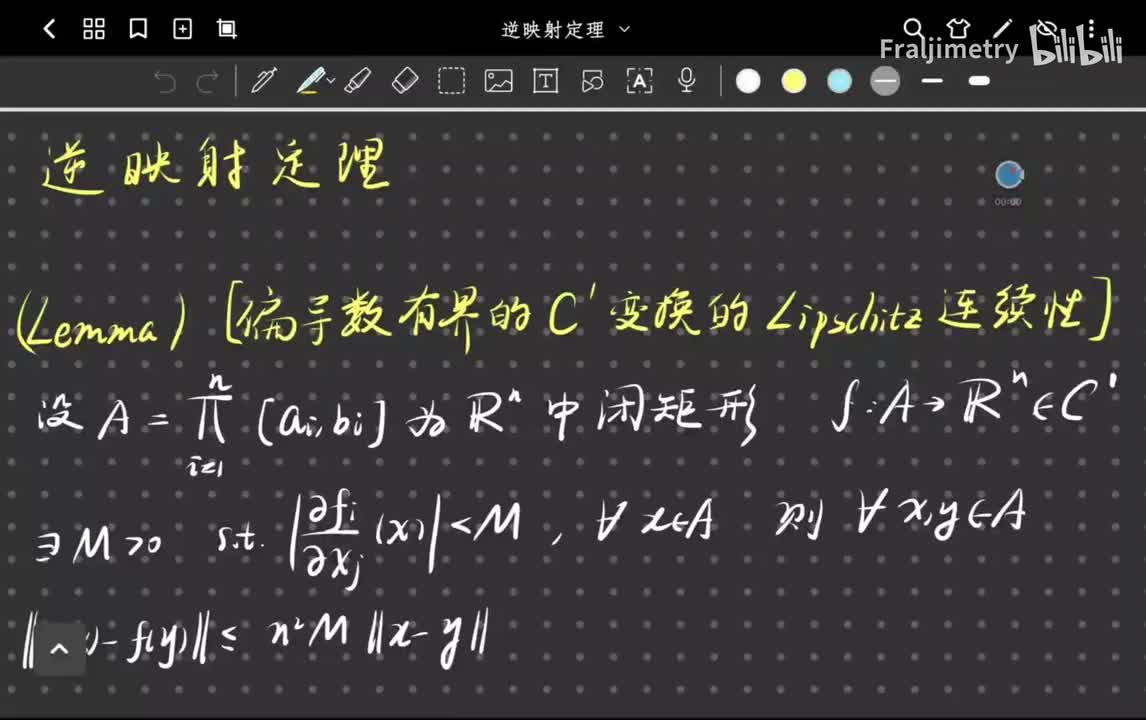 逆映射定理
Fraljimetry bilibili
T A
逆映射定理
00:00
(Lemma) [偏导数有界的 C¹ 变换的 Lipschitz 连续性]
设 A = ∏ᵢ₌₁ⁿ [aᵢ,bᵢ] 为 ℝⁿ 中闭矩形 f:A→ℝⁿ∈C¹
∃M>0 s.t. |∂fᵢ/∂xⱼ (x)|<M, ∀x∈A 则 ∀x,y∈A
‖ )- f(y)‖≤ n²M‖x-y‖